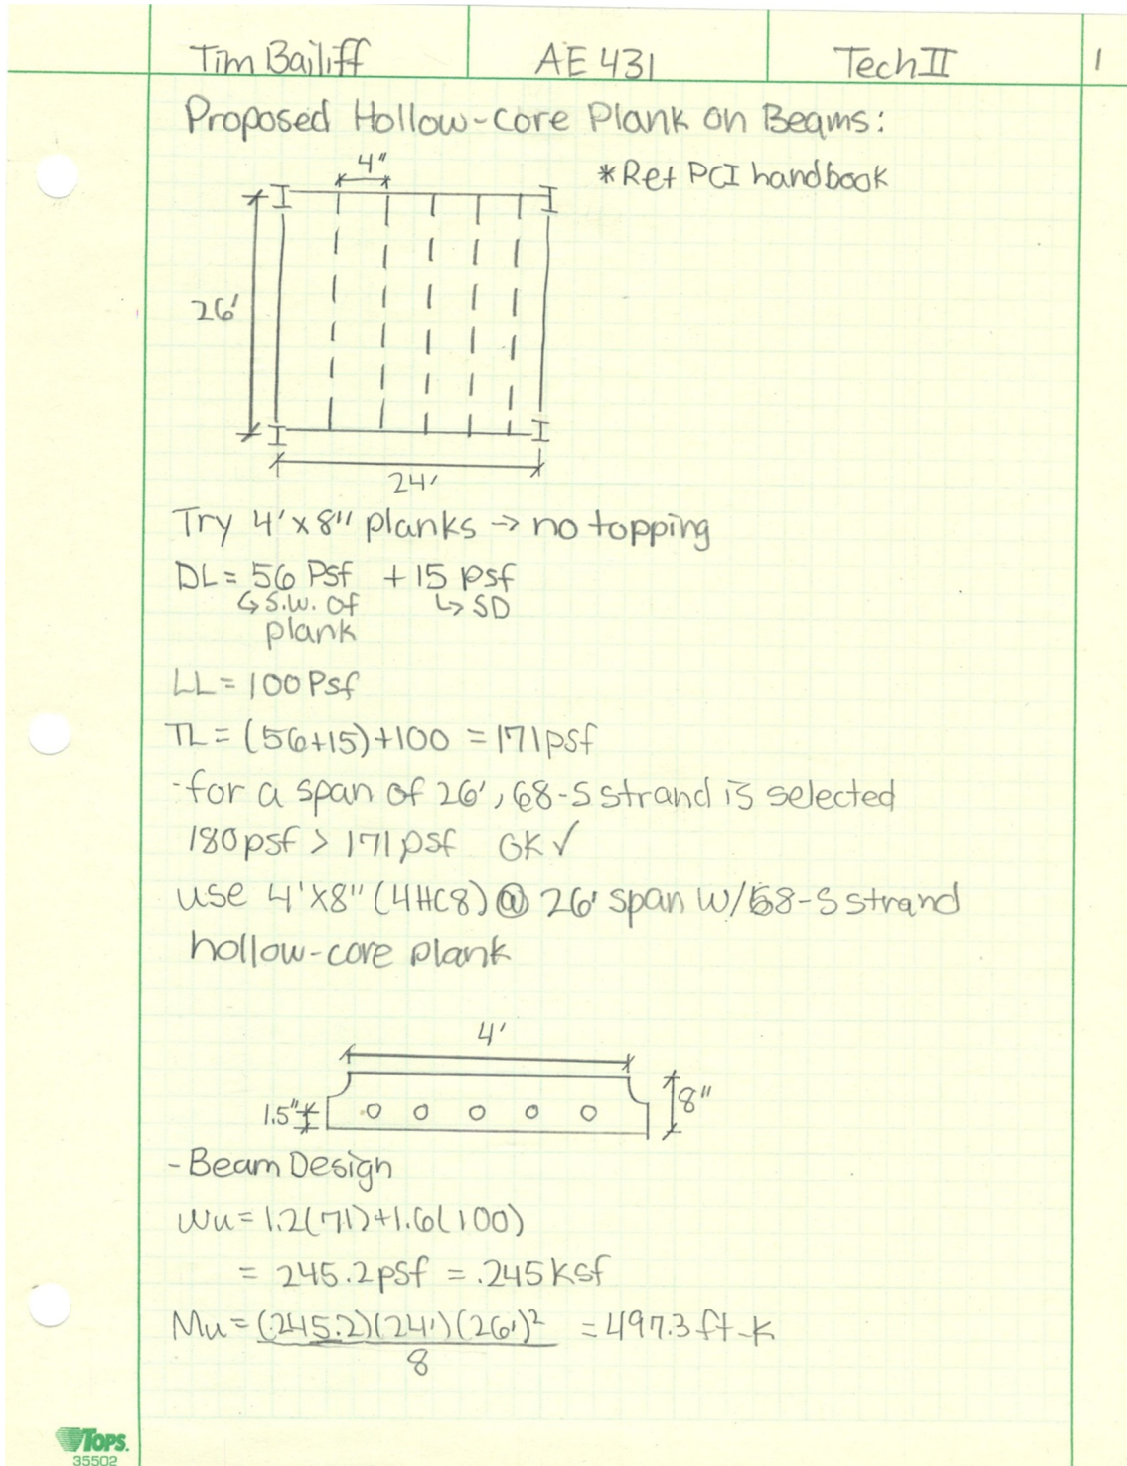 Tim Bailiff AE 431 Tech II 1
Proposed Hollow-core Plank on Beams:
4"
*Ref PCI handbook
26'
24'
Try 4'x8" planks → no topping
DL = 56 Psf + 15 psf
↳ S.W. of ↳ SD
plank
LL = 100 Psf
TL = (56+15)+100 = 171 psf
-for a span of 26', 68-S strand is selected
180 psf > 171 psf OK ✓
use 4'x8" (4HC8) @ 26' span w/ 68-S strand
hollow-core plank
4'
1.5"
8"
- Beam Design
Wu = 1.2(71)+1.6(100)
= 245.2 psf = .245 ksf
Mu = (245.2)(24')(26')² = 497.3 ft-k
8
TOPS.
35502